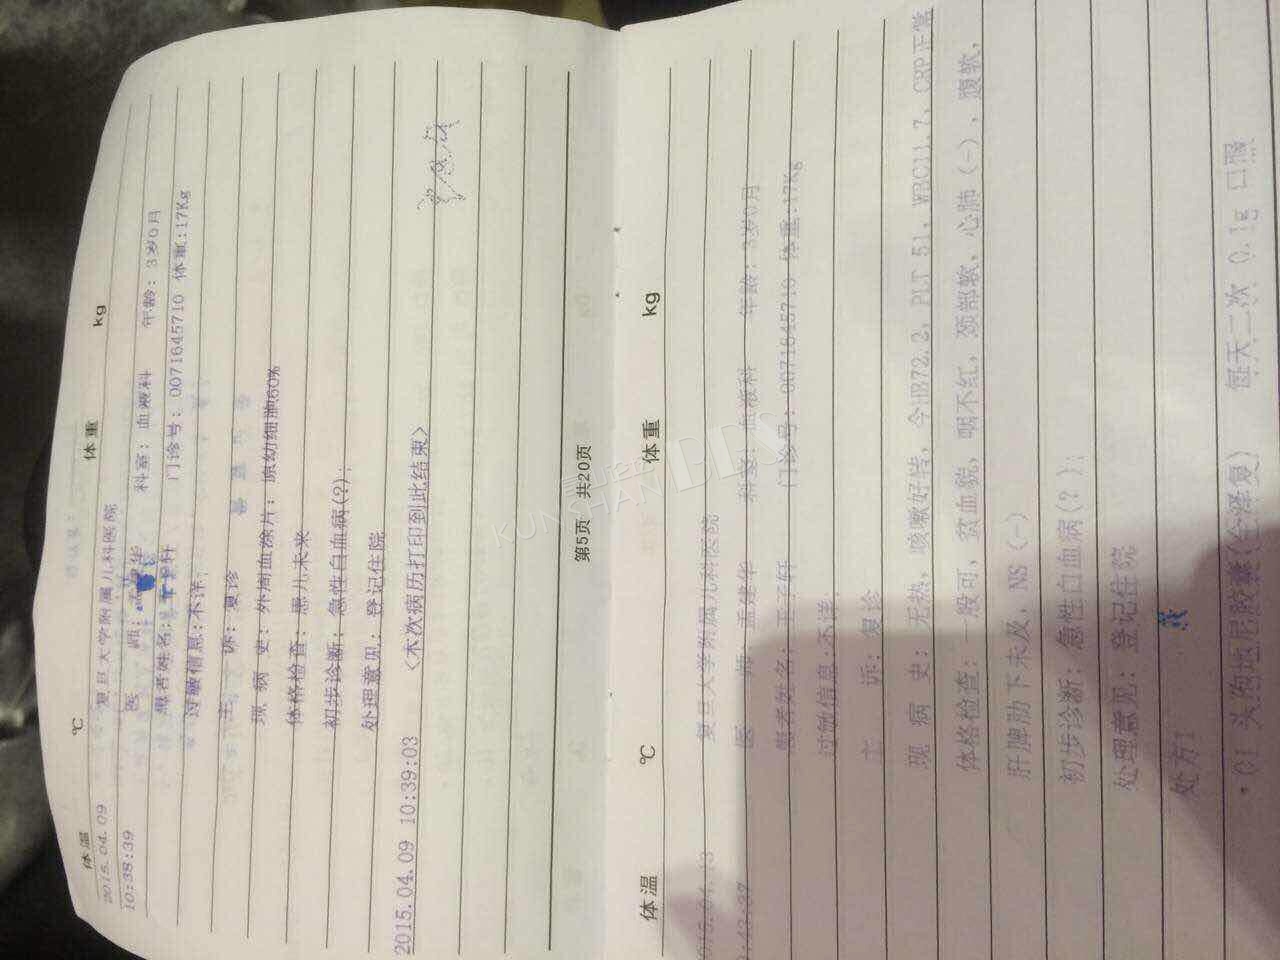 体温 ℃ 体重 kg
2015.04.09 复旦大学附属儿科医院
10:38:39 医 师: 华 科室: 血液科 年龄: 3岁0月
患者姓名: 轩 门诊号: 0071645710 体重:17Kg
过敏信息:不详,
主 诉: 复诊
现 病 史: 外周血涂片: 原幼细胞60%
体格检查: 患儿未来
初步诊断: 急性白血病(?);
处理意见: 登记住院
2015.04.09 10:39:03 〈本次病历打印到此结束〉
第5页 共20页
体温 ℃ 体重 kg
复旦大学附属儿科医院
医 师: 孟建华 科室: 血液科 年龄: 3岁0月
患者姓名: 子轩 门诊号: 0071645710 体重:17Kg
过敏信息:不详,
主 诉: 复诊
现 病 史: 无热, 咳嗽好转, 今HB72.2, PLT 51, WBC11.7, CRP正常
体格检查: 一般可, 贫血貌, 咽不红, 颈部软, 心肺(-), 腹软,
肝脾肋下未及, NS (-)
初步诊断: 急性白血病(?);
处理意见: 登记住院
处方1
·01 头孢地尼胶囊(全泽复) 每天二次 0.1g 口服
KUNSHAN BBS